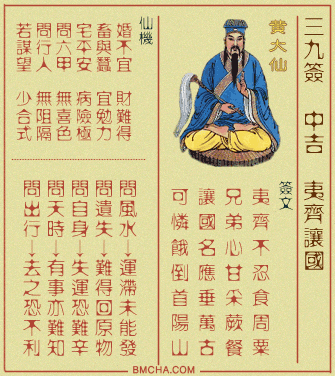 三九簽 中吉 夷齊讓國
黃大仙
簽文
夷齊不忍食周粟
兄弟心甘采蕨餐
讓國名應垂萬古
可憐餓倒首陽山
仙機
婚不宜 財難得
畜與蠶 宜勉力
宅平安 病險極
問六甲 無喜色
問行人 無阻隔
若謀望 少合式
問風水→運滯未能發
問遺失→難得回原物
問自身→失運恐難辛
問天時→有事亦難知
問出行→去之恐不利
BMCHA.COM